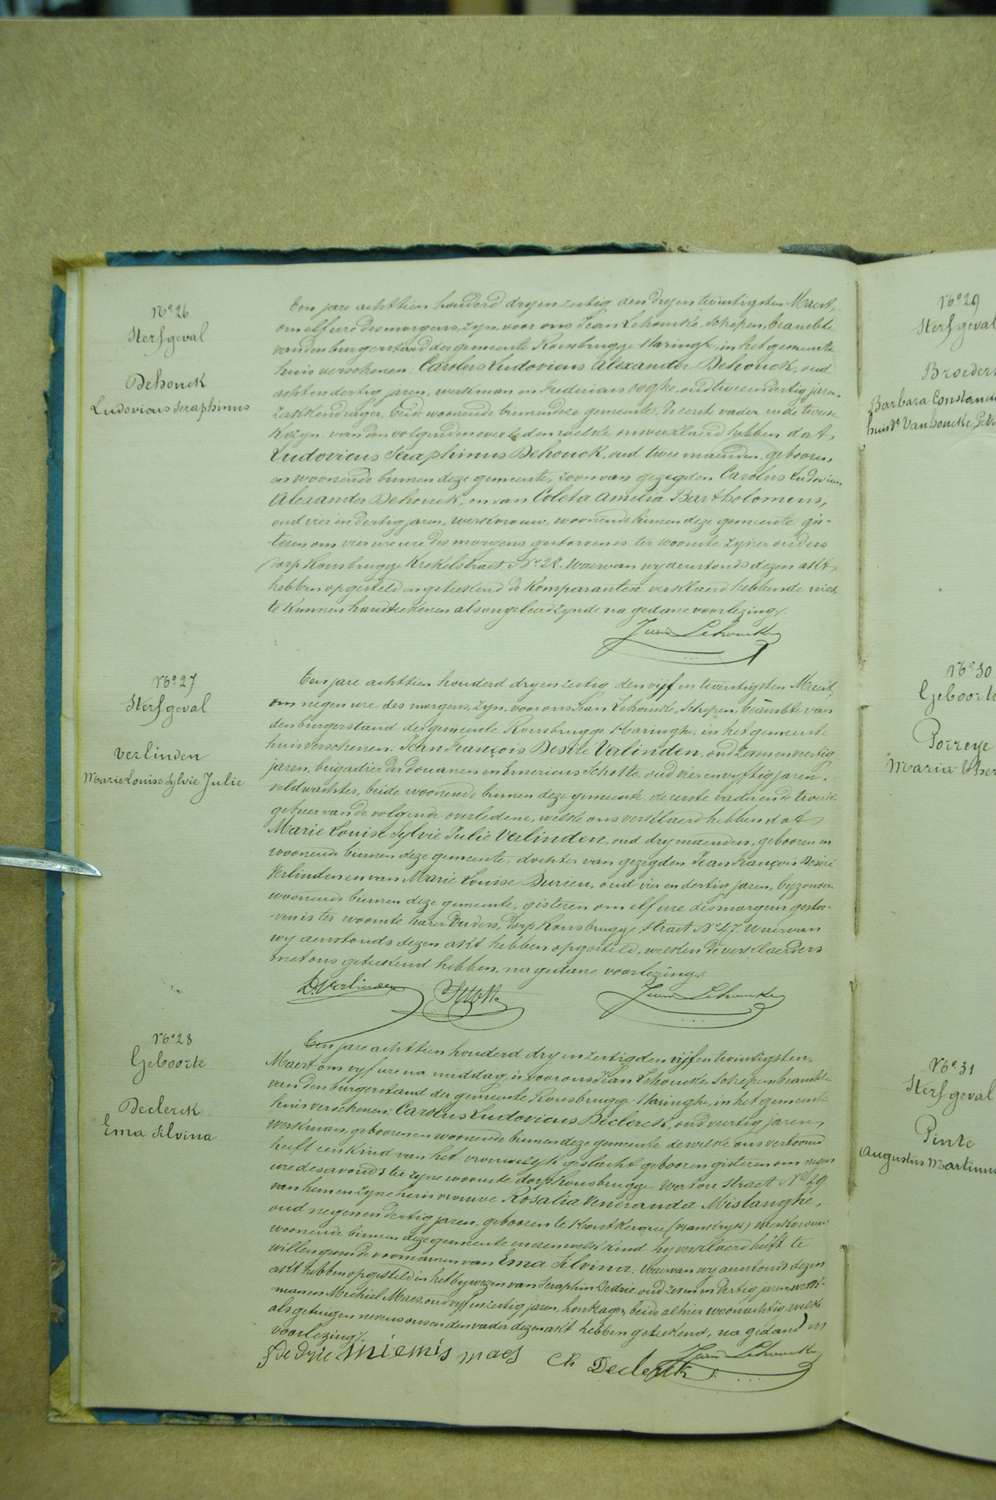 N° 26
Sterfgeval
Dehouck
Ludovicus Seraphinus
Een jare achttien honderd dryenzestig den dryentwintigsten Maert,
om elf ure des morgens, zyn voor ons Jean Lehoucke, Schepen, beambte
van den burgerstand der gemeente Rousbrugge Haringhe, in het gemeente
huis verschenen Carolus Ludovicus Alexander Dehouck, oud
achtendertig jaren, werkman en oud tweeendertig jaren,
beide woonende binnen deze gemeente, de eerste vader en de tweede
Kozyn van den volgenden overledenen welke ons verklaerd hebben dat
Ludovicus Seraphinus Dehouck, oud twee maanden, geboren
en woonende binnen deze gemeente, zoon van gezegden Carolus Ludovicus
Alexander Dehouck, en van Coleta Amelia Bartholomeus,
oud vier en dertig jaren, werkvrouw, woonende binnen deze gemeente gis-
teren om vier ure des morgens gestorven is ter woonste zyner ouders
dorp Rousbrugge Krekelstraet N° 22. Waervan wy aenstonds dezen akt
hebben opgesteld en geteekend de Komparanten verklaerd hebbende niet
te kunnen handteekenen als ongeleerd zynde na gedane voorlezing.
Jean Lehoucke
N° 27
Sterfgeval
Verlinden
Marie Louise Sylvie Julie
Een jare achttien honderd dryenzestig, den vyf en twintigsten Maert,
om negen ure des morgens, zyn voor ons Jean Lehoucke, Schepen, beambte van
den burgerstand der gemeente Rousbrugge Haringhe, in het gemeente
huis verschenen Jean François Desiré Verlinden, oud
jaren, brigadier der douanen en Emericus Schotte, oud vier en vyftig jaren,
veldwachter, beide woonende binnen deze gemeente, de eerste vader en de tweede
gebuer van de volgende overledene, welke ons verklaerd hebben dat
Marie Louise Sylvie Julie Verlinden, oud dry maenden, geboren en
woonende binnen deze gemeente, dochter van gezegden Jean François Desiré
Verlinden en van Marie Louise Durieu, oud vier en dertig jaren, byzondere
woonende binnen deze gemeente, gisteren om elf ure des morgens gestor-
ven is ter woonste harer Ouders, Dorp Rousbrugge, Straet N° 47. Waervan
wy aenstonds dezen akt hebben opgesteld, welken de verklaerders
met ons geteekend hebben, na gedane voorlezing.
D. Verlinden Schotte Jean Lehoucke
N° 28
Geboorte
Declerck
Ema Silvina
Een jare achttien honderd dry en zestig den vyf en twintigsten
Maert om vyf ure na middag, is voor ons Jean Lehoucke Schepen beambte
van den burgerstand der gemeente Rousbrugge Haringhe, in het gemeente
huis verschenen Carolus Ludovicus Declerck, oud veertig jaren,
werkman, geboren en woonende binnen deze gemeente dewelke ons vertoond
heeft een kind van het vrouwelyk geslacht geboren gisteren om negen
ure des avonds ter zyne woonste dorp Rousbrugge Straet N° 29
van hem en zyne huisvrouwe Rosalia Veneranda Mislanghe,
oud negenendertig jaren, geboren te (Frankryk) werkvrouw
woonende binnen deze gemeente en aen welk kind hy verklaerd heeft te
willen geven de voornamen van Ema Silvina. Waervan wy aenstonds dezen
akt hebben opgesteld in het bywezen van Seraphin Dedrie, oud zeven en dertig jaren
Michiel Maes, oud vyfenzestig jaren, beide alhier woonachtig, welke
als getuigen nevens ons en den vader dezen akt hebben geteekend, na gedane
voorlezing.
S de drie Maes Ch Declerck Jean Lehoucke
N° 29
Sterfgeval
Broeders
Barbara Constancia
Vanhoucke,
N° 30
Geboorte
Porreye
Maria
N° 31
Sterfgeval
Pinte
Augustus Martinus